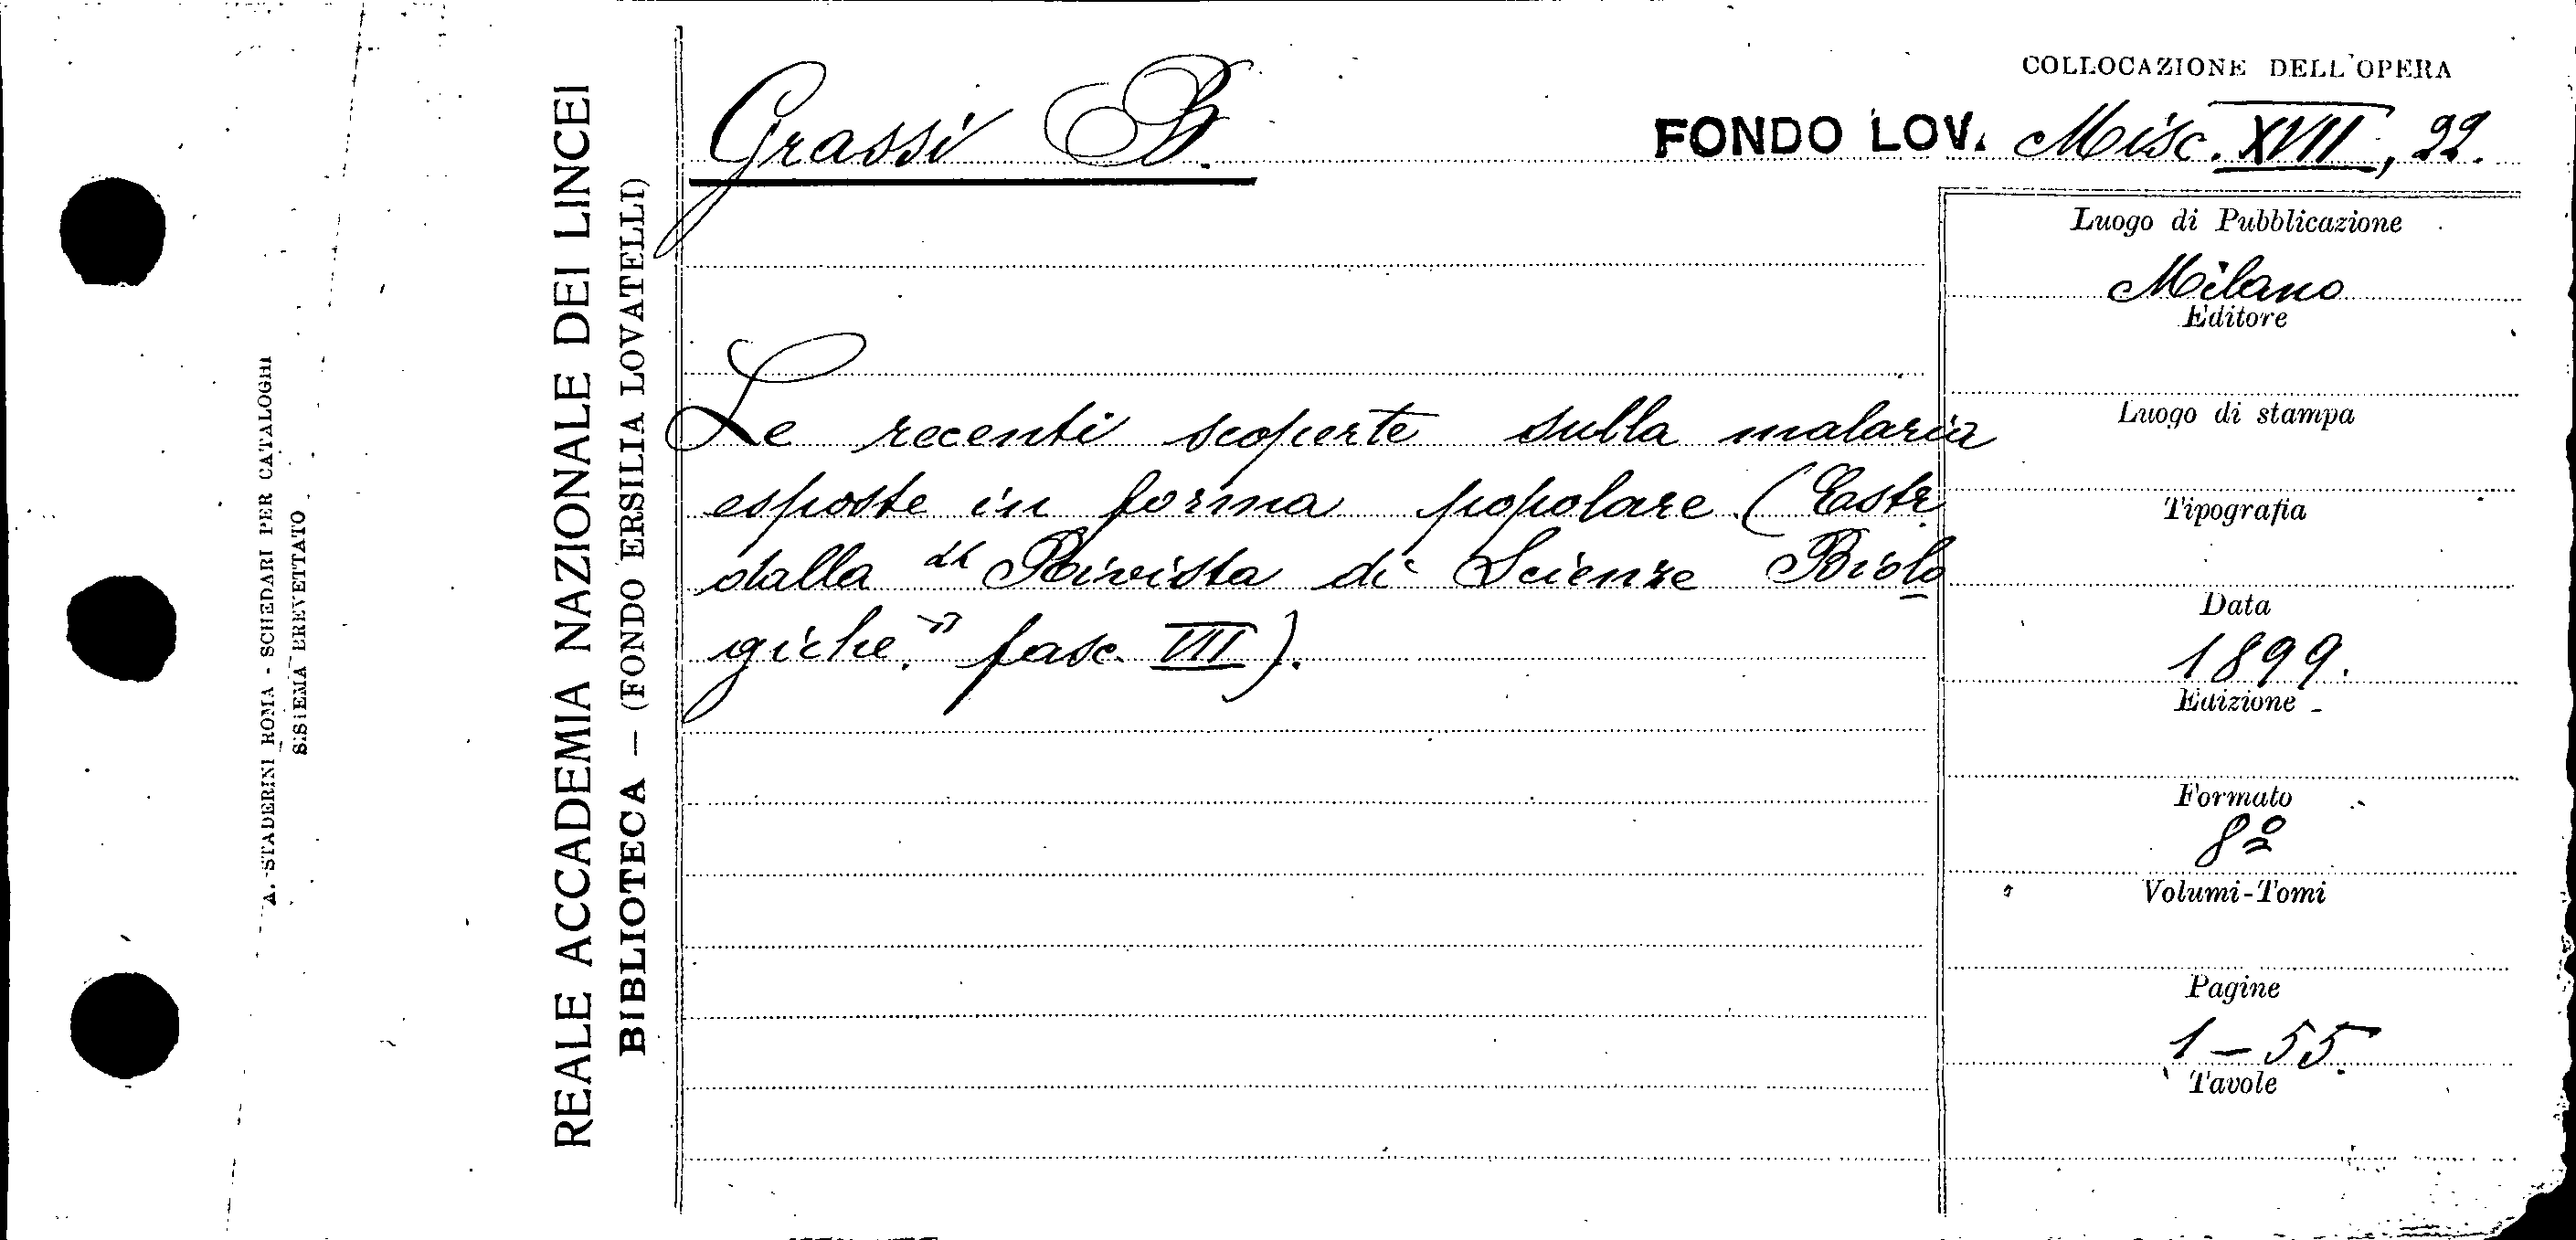 COLLOCAZIONE DELL'OPERA
Grassi B. FONDO LOV. Misc. XVII, 22.
Le recenti scoperte sulla malaria
esposte in forma popolare (Estr.
dalla "Rivista di Scienze Biolo
giche." fasc. VII).
Luogo di Pubblicazione
Milano
Editore
Luogo di stampa
Tipografia
Data
1899.
Edizione
Formato
8º
Volumi-Tomi
Pagine
1-55.
Tavole
REALE ACCADEMIA NAZIONALE DEI LINCEI
BIBLIOTECA - (FONDO ERSILIA LOVATELLI)
A. STADERINI ROMA - SCHEDARI PER CATALOGHI
SISTEMA BREVETTATO